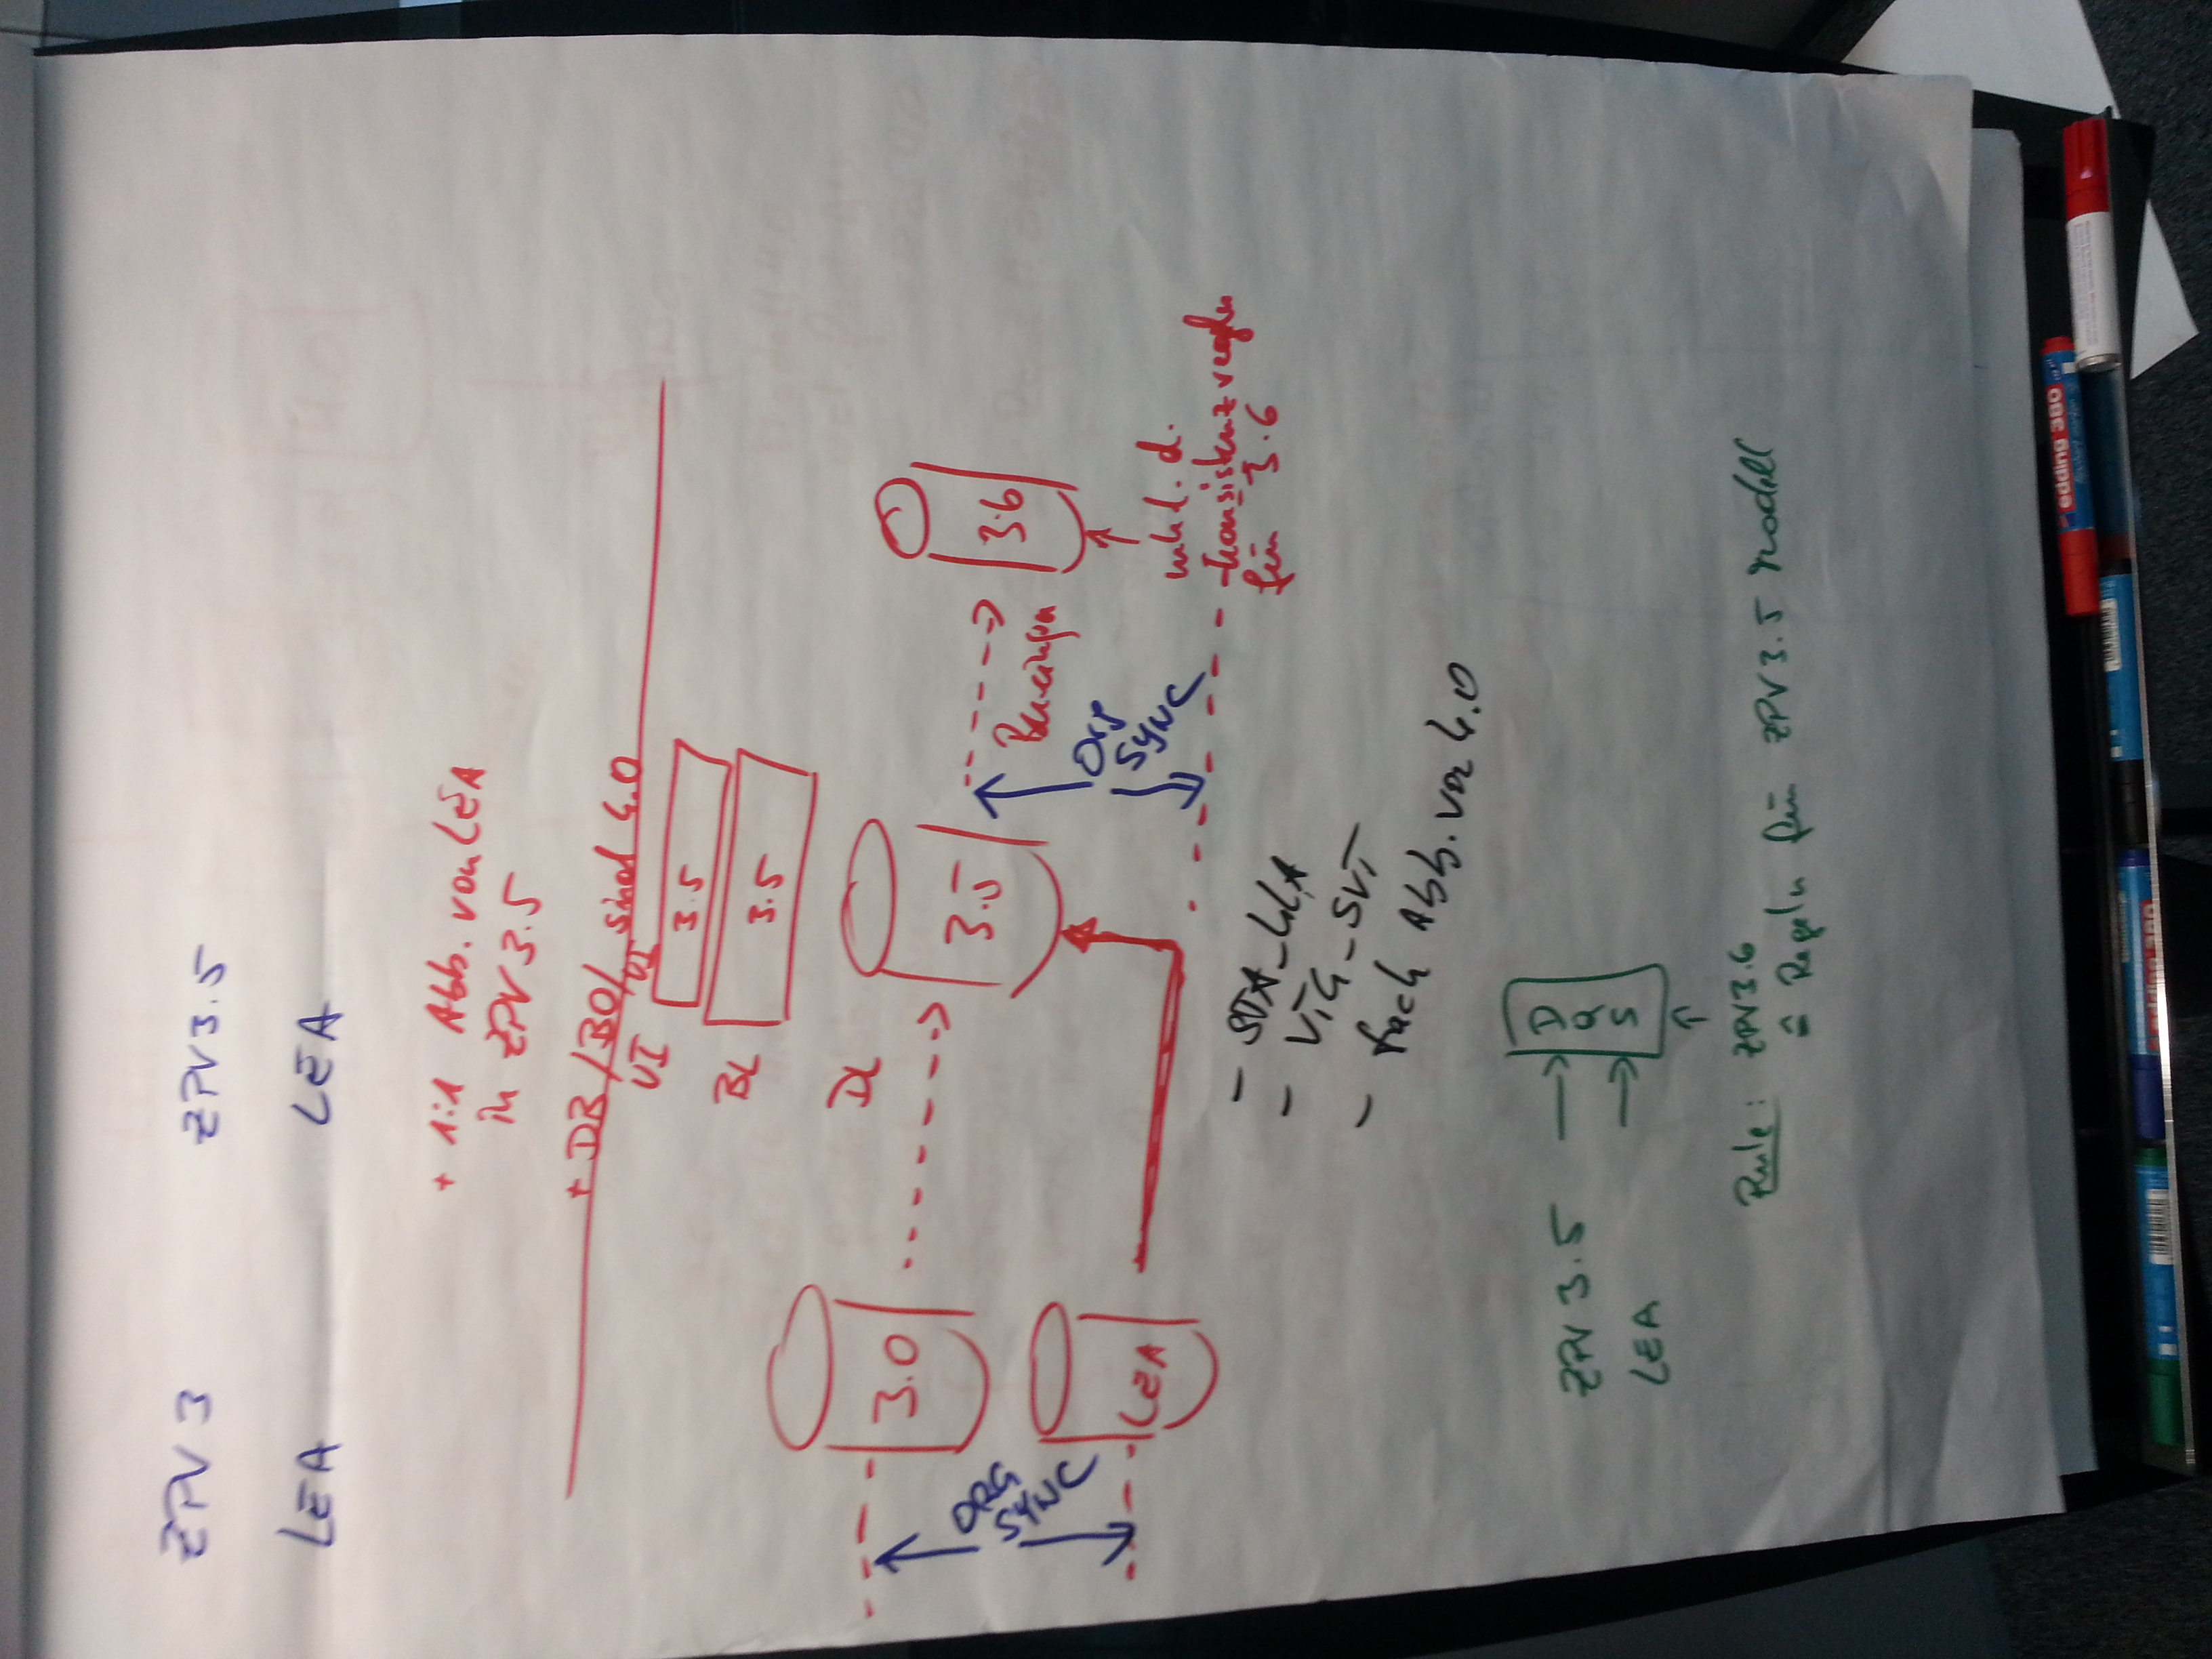 ZPV 3 ZPV 3.5
LEA LEA
+ 1:1 Abb. von LEA
in ZPV 3.5
+ DB/BO/UI sind 4.0
UI 3.5
BL 3.5
DL
3.0 3.5 3.6
Bereinigen
ORG
SYNC
Org
SYNC
LEA
inkl. d.
Konsistenzregeln
für 3.6
- VTG - SVT
- fach Abb. von 4.0
ZPV 3.5
LEA
D
Q
S
Rule: ZPV 3.6
≙ Regeln für ZPV 3.5 Modell
edding 380